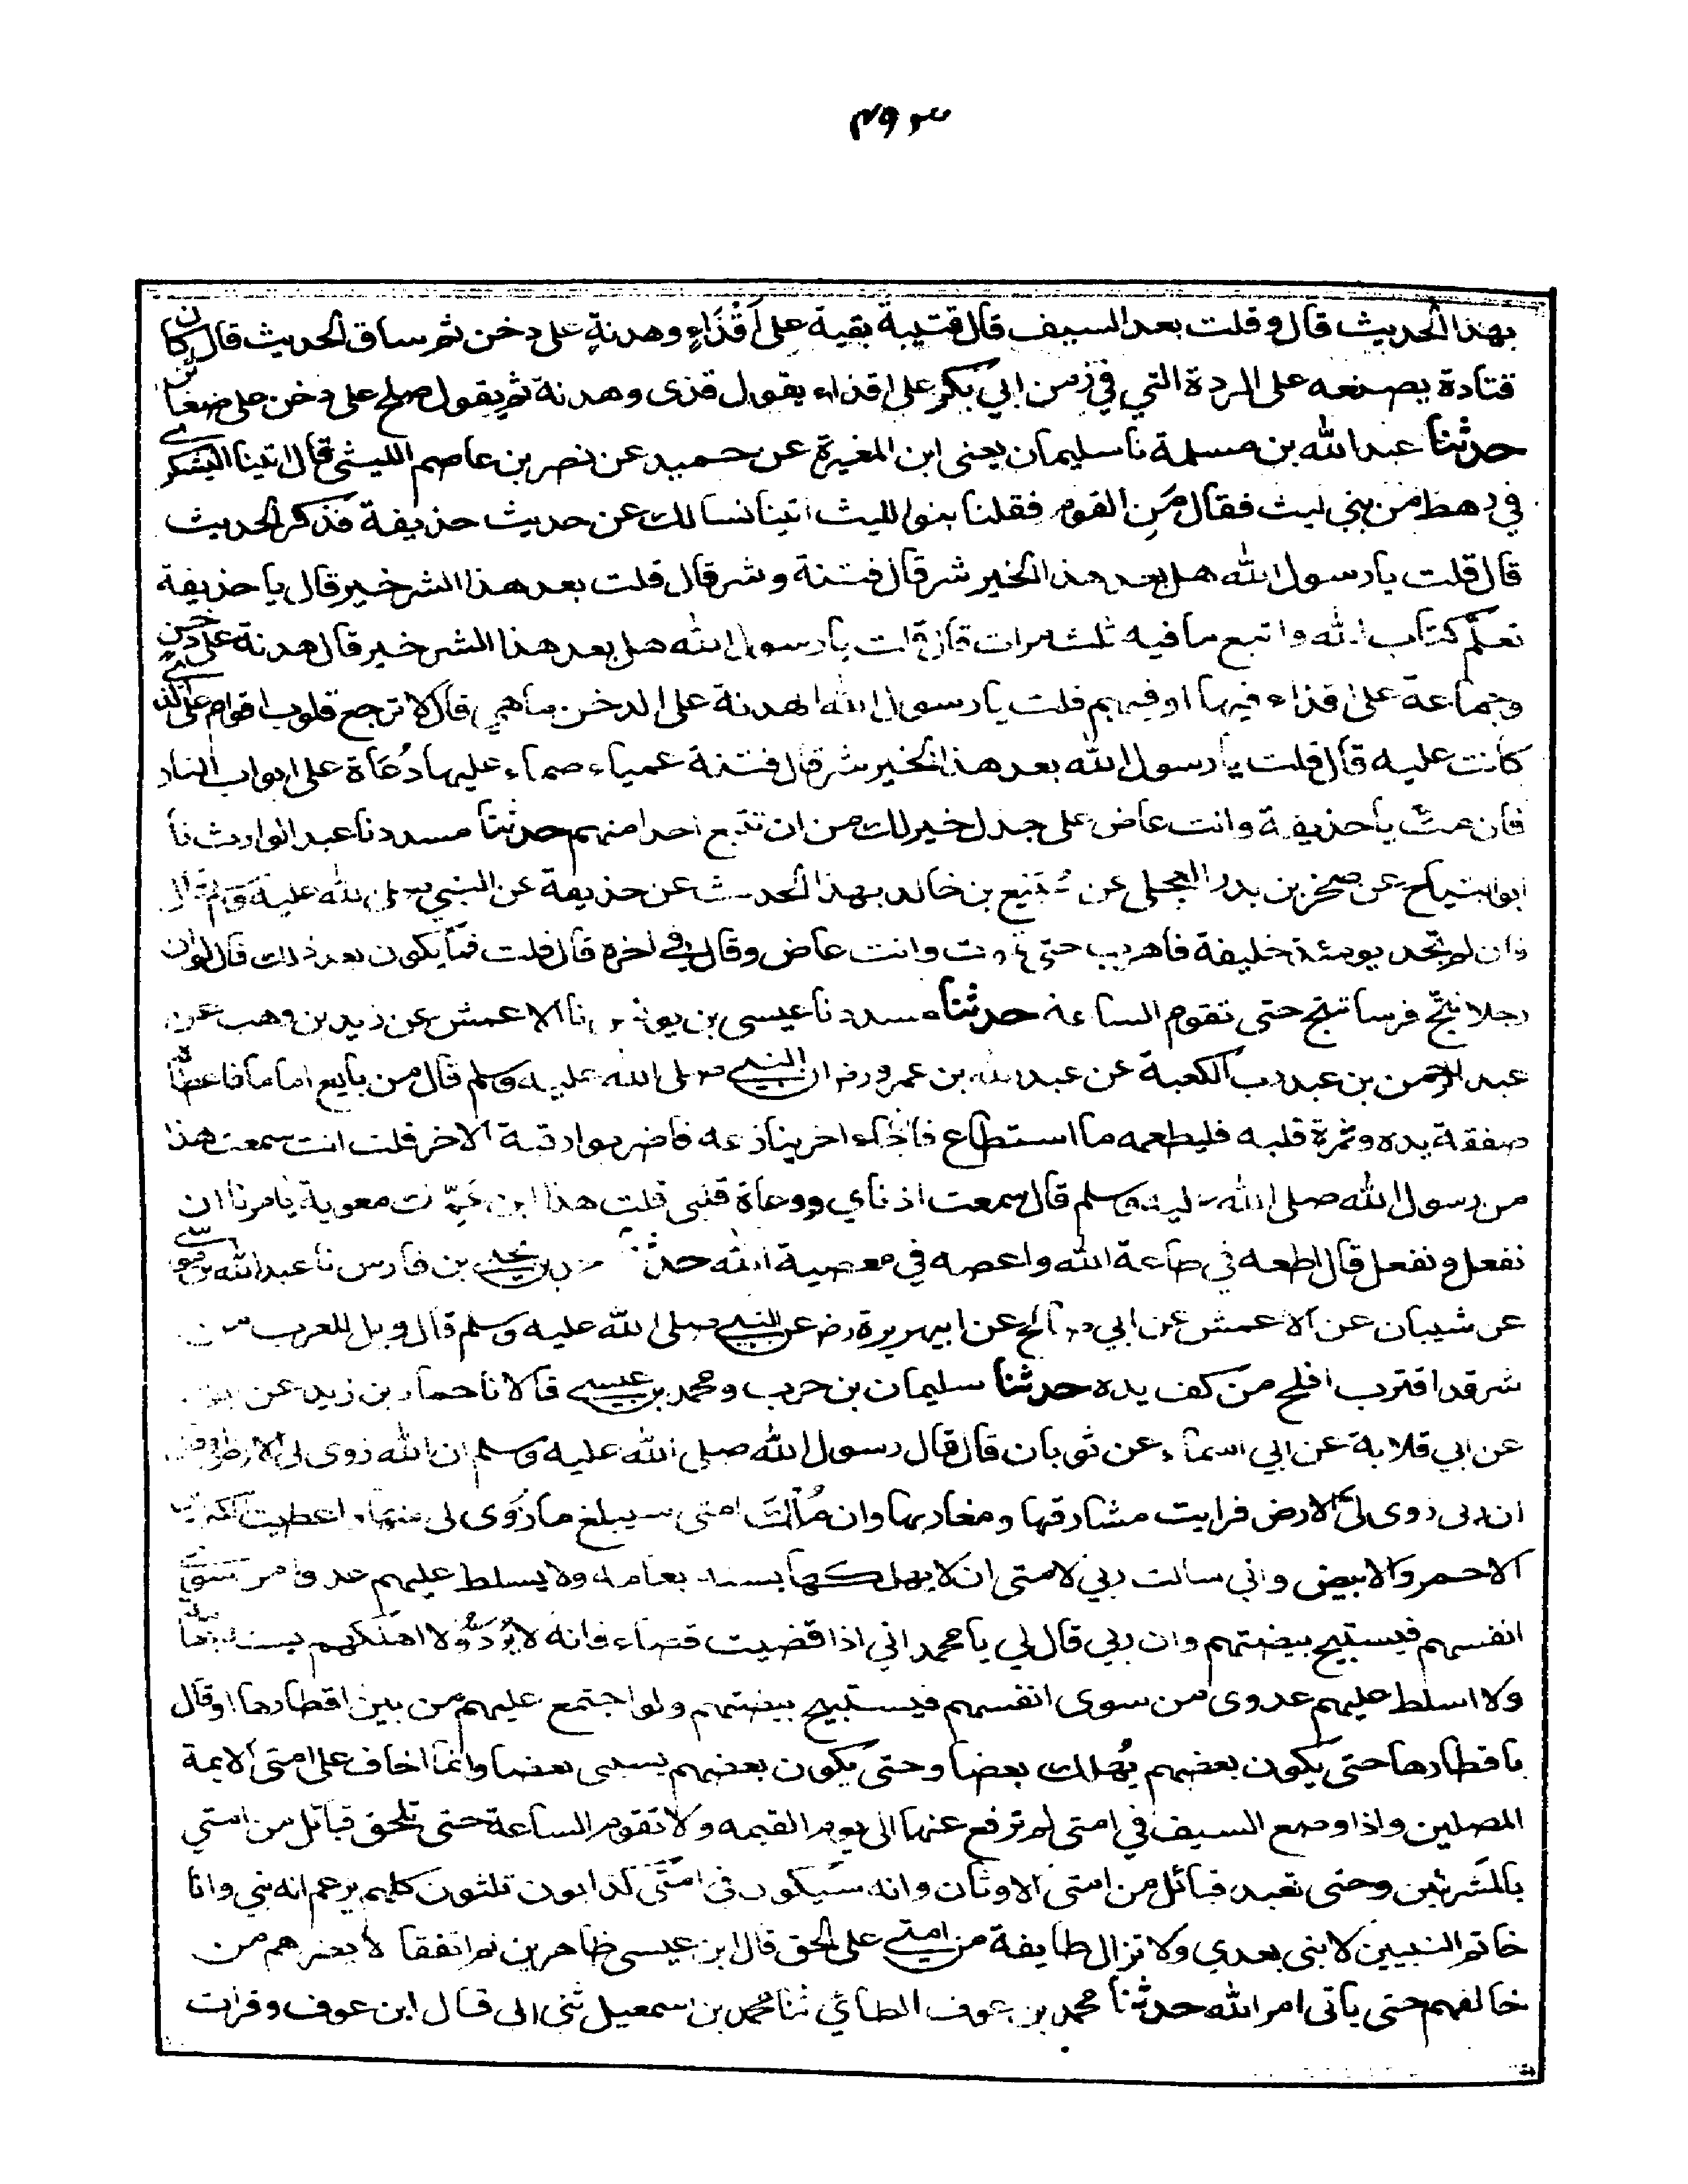 ۴۹۳
بهذا الحديث قال وقلت بعد السيف قال قتيبة بقية على أقذاءٍ وهدنةٍ على دخن ثم ساق الحديث قال كان
قتادة يصنعه على الردة التي في زمن ابي بكر على اقذاء يقول قذى وهدنة ثم يقول صلح على دخن على ضغائن
حدثنا عبد الله بن مسلمة نا سليمان يعني ابن المغيرة عن حميد عن نصر بن عاصم الليثي قال اتينا اليشكري
في رهط من بني ليث فقال من القوم فقلنا بنو الليث اتينا نسالك عن حديث حذيفة فذكر الحديث
قال قلت يا رسول الله هل بعد هذا الخير شر قال فتنة وشر قال قلت بعد هذا الشر خير قال يا حذيفة
تعلّم كتاب الله واتبع ما فيه ثلث مرات قال قلت يا رسول الله هل بعد هذا الشر خير قال هدنة على دخن
وجماعة على اقذاء فيها او فيهم قلت يا رسول الله الهدنة على الدخن ما هي قال لا ترجع قلوب اقوام على الذي
كانت عليه قال قلت يا رسول الله بعد هذا الخير شر قال فتنة عمياء صماء عليها دُعاة على ابواب النار
فان مت يا حذيفة وانت عاض على جذل خير لك من ان تتبع احدا منهم حدثنا مسدد نا عبد الوارث نا
ابو التياح عن صخر بن بدر العجلي عن سُبَيْع بن خالد بهذا الحديث عن حذيفة عن النبي صلى الله عليه وسلم قال
فان لم تجد يومئذ خليفة فاهرب حتى تموت وانت عاض وقال في اخره قال قلت فما يكون بعد ذلك قال لو ان
رجلا نتج فرسا تنتج حتى تقوم الساعة حدثنا مسدد نا عيسى بن يونس نا الاعمش عن زيد بن وهب عن
عبد الرحمن بن عبد رب الكعبة عن عبد الله بن عمرو رض ان النبي صلى الله عليه وسلم قال من بايع اماما فاعطاه
صفقة يده وثمرة قلبه فليطعه ما استطاع فان جاء اخر ينازعه فاضربوا رقبة الاخر قلت انت سمعت هذا
من رسول الله صلى الله عليه وسلم قال سمعت اذناي ووعاه قلبي قلت هذا ابن عمّك معوية يامرنا ان
نفعل ونفعل قال اطعه في طاعة الله واعصه في معصية الله حدثنا محمد بن يحيى بن فارس نا عبيد الله بن موسى
عن شيبان عن الاعمش عن ابي صالح عن ابي هريرة رض عن النبي صلى الله عليه وسلم قال ويل للعرب من
شر قد اقترب افلح من كف يده حدثنا سليمان بن حرب ومحمد بن عيسى قالا نا حماد بن زيد عن ايوب
عن ابي قلابة عن ابي اسماء عن ثوبان قال قال رسول الله صلى الله عليه وسلم ان الله زوى لي الارض او قال
ان ربي زوى لي الارض فرايت مشارقها ومغاربها وان مُلْكَ امتي سيبلغ ما زُوى لي منها واعطيت الكنزين
الاحمر والابيض واني سالت ربي لامتي ان لا يهلكها بسنة بعامة ولا يسلط عليهم عدوا من سوى
انفسهم فيستبيح بيضتهم وان ربي قال لي يا محمد اني اذا قضيت قضاء فانه لا يُردُّ ولا اهلكهم بسنة بعامة
ولا اسلط عليهم عدوى من سوى انفسهم فيستبيح بيضتهم ولو اجتمع عليهم من بين اقطارها او قال
باقطارها حتى يكون بعضهم يُهلك بعضا وحتى يكون بعضهم يسبى بعضا وانما اخاف على امتى الايمة
المضلين واذا وضع السيف في امتى لم ترفع عنها الى يوم القيمه ولا تقوم الساعة حتى تلحق قبائل من امتي
بالمشركين وحتى تعبد قبائل من امتى الاوثان وانه سيكون في امتى كذابون ثلثون كلهم يزعم انه نبي وانا
خاتم النبيين لا نبى بعدي ولا تزال طايفة من امتي على الحق قال ابن عيسى ظاهرين ثم اتفقا لا يضرهم من
خالفهم حتى ياتى امر الله حدثنا محمد بن عوف الطائي ثنا محمد بن اسمعيل ثنى ابى قال ابن عوف وقرات